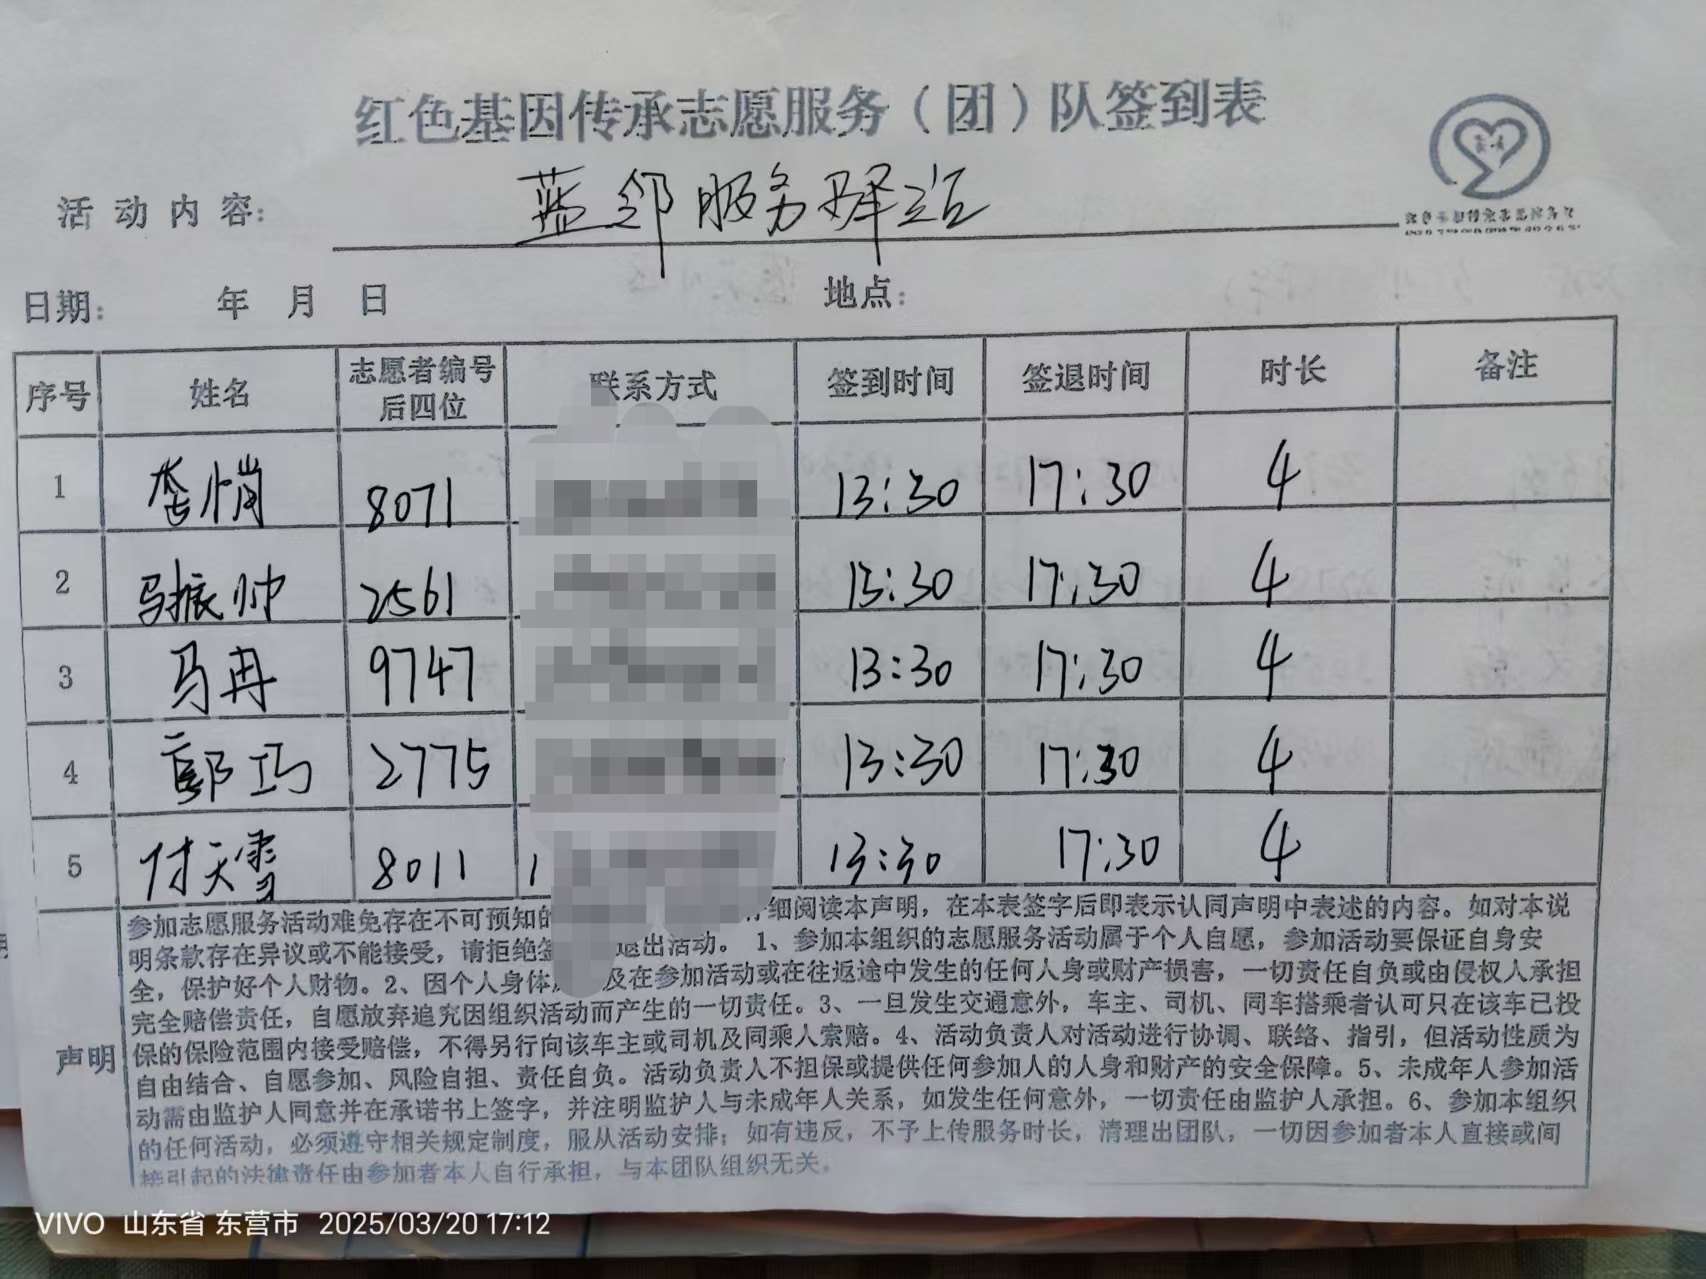 红色基因传承志愿服务（团）队签到表
活动内容：蓝邻服务驿站
日期： 年 月 日 地点：
序号 姓名 志愿者编号后四位 联系方式 签到时间 签退时间 时长 备注
1 8071 13:30 17:30 4
2 马振帅 2561 13:30 17:30 4
3 马冉 9747 13:30 17:30 4
4 郭巧 2775 13:30 17:30 4
5 付天雪 8011 1 13:30 17:30 4
声明
参加志愿服务活动难免存在不可预知的 仔细阅读本声明，在本表签字后即表示认同声明中表述的内容。如对本说
明条款存在异议或不能接受，请拒绝签 退出活动。1、参加本组织的志愿服务活动属于个人自愿，参加活动要保证自身安
全，保护好个人财物。2、因个人身体 及在参加活动或在往返途中发生的任何人身或财产损害，一切责任自负或由侵权人承担
完全赔偿责任，自愿放弃追究因组织活动而产生的一切责任。3、一旦发生交通意外，车主、司机、同车搭乘者认可只在该车已投
保的保险范围内接受赔偿，不得另行向该车主或司机及同乘人索赔。4、活动负责人对活动进行协调、联络、指引，但活动性质为
自由结合、自愿参加、风险自担、责任自负。活动负责人不担保或提供任何参加人的人身和财产的安全保障。5、未成年人参加活
动需由监护人同意并在承诺书上签字，并注明监护人与未成年人关系，如发生任何意外，一切责任由监护人承担。6、参加本组织
的任何活动，必须遵守相关规定制度，服从活动安排；如有违反，不予上传服务时长，清理出团队，一切因参加者本人直接或间
接引起的法律责任由参加者本人自行承担，与本团队组织无关。
VIVO 山东省 东营市 2025/03/20 17:12